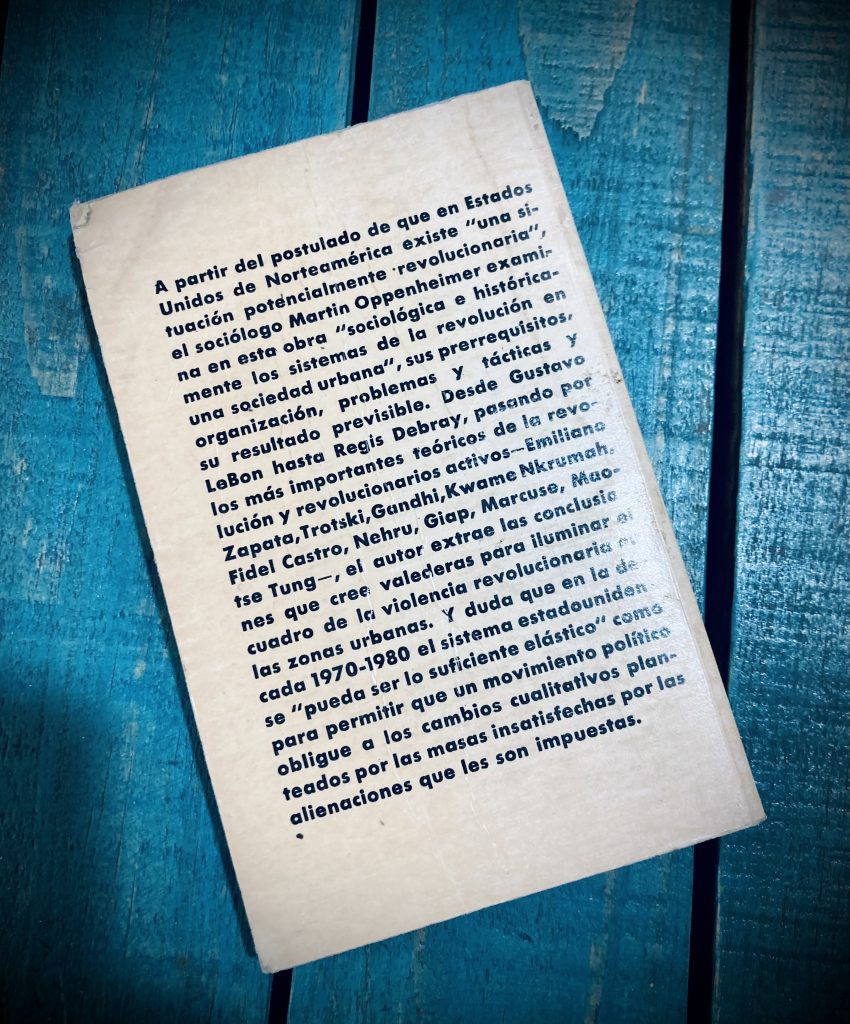 A partir del postulado de que en Estados
Unidos de Norteamérica existe "una si-
tuación potencialmente revolucionaria",
el sociólogo Martin Oppenheimer exami-
na en esta obra "sociológica e histórica-
mente los sistemas de la revolución en
una sociedad urbana", sus prerrequisitos,
organización, problemas y tácticas y
su resultado previsible. Desde Gustavo
LeBon hasta Regis Debray, pasando por
los más importantes teóricos de la revo-
lución y revolucionarios activos—Emiliano
Zapata, Trotski, Gandhi, Kwame Nkrumah,
Fidel Castro, Nehru, Giap, Marcuse, Mao-
tse Tung—, el autor extrae las conclusio
nes que cree valederas para iluminar el
cuadro de la violencia revolucionaria
las zonas urbanas. Y duda que en la dé-
cada 1970-1980 el sistema estadouniden-
se "pueda ser lo suficiente elástico" como
para permitir que un movimiento político
obligue a los cambios cualitativos plan-
teados por las masas insatisfechas por las
alienaciones que les son impuestas.